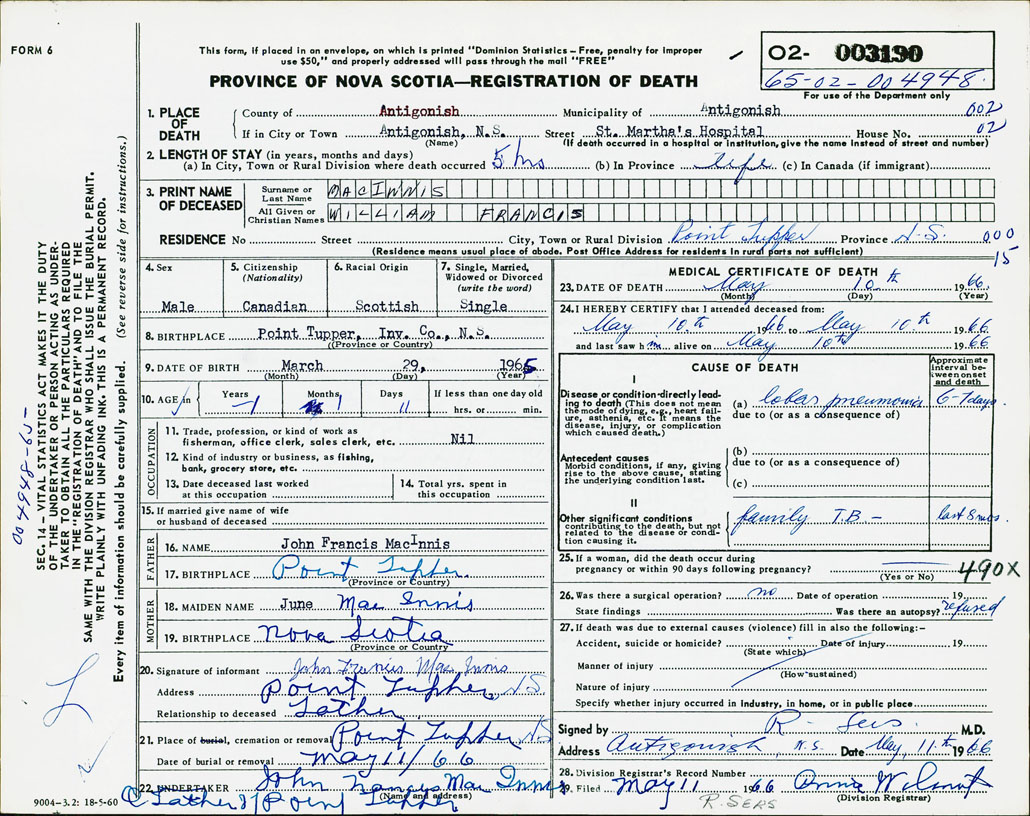 FORM 6
This form, if placed in an envelope, on which is printed "Dominion Statistics – Free, penalty for improper
use $50," and properly addressed will pass through the mail "FREE"
PROVINCE OF NOVA SCOTIA—REGISTRATION OF DEATH
02- 003190
65-02-004948.
For use of the Department only
1. PLACE OF DEATH
County of Antigonish Municipality of Antigonish 002
If in City or Town Antigonish, N.S. Street St. Martha's Hospital House No. 02
(Name) (If death occurred in a hospital or institution, give the name instead of street and number)
2. LENGTH OF STAY (in years, months and days)
(a) In City, Town or Rural Division where death occurred 5 hrs (b) In Province life (c) In Canada (if immigrant)
3. PRINT NAME OF DECEASED
Surname or Last Name MACINNIS
All Given or Christian Names WILLIAM FRANCIS
RESIDENCE No Street City, Town or Rural Division Point Tupper Province N.S. 000
(Residence means usual place of abode. Post Office Address for residents in rural parts not sufficient) 15
4. Sex
Male
5. Citizenship (Nationality)
Canadian
6. Racial Origin
Scottish
7. Single, Married, Widowed or Divorced (write the word)
Single
8. BIRTHPLACE Point Tupper, Inv. Co., N.S.
(Province or Country)
9. DATE OF BIRTH March 29, 1965
(Month) (Day) (Year)
10. AGE in Years Months Days If less than one day old
1 1 11 hrs. or min.
OCCUPATION
11. Trade, profession, or kind of work as
fisherman, office clerk, sales clerk, etc. Nil
12. Kind of industry or business, as fishing,
bank, grocery store, etc.
13. Date deceased last worked
at this occupation
14. Total yrs. spent in
this occupation
15. If married give name of wife
or husband of deceased
FATHER
16. NAME John Francis MacInnis
17. BIRTHPLACE Point Tupper
(Province or Country)
MOTHER
18. MAIDEN NAME June Mac Innis
19. BIRTHPLACE Nova Scotia
(Province or Country)
20. Signature of informant John Francis Mac Innis
Address Point Tupper N.S.
Relationship to deceased Father
21. Place of burial, cremation or removal Point Tupper N.S.
Date of burial or removal May 11/66
22. UNDERTAKER John Mac Innis
(Name and address)
Father Point Tupper
9004-3.2: 18-5-60
MEDICAL CERTIFICATE OF DEATH
23. DATE OF DEATH May 10th 1966
(Month) (Day) (Year)
24. I HEREBY CERTIFY that I attended deceased from:
May 10th 1966 to May 10th 1966
and last saw him alive on May 10th 1966
CAUSE OF DEATH
Approximate interval between onset and death
I
Disease or condition directly leading to death (This does not mean the mode of dying, e.g., heart failure, asthenia, etc. It means the disease, injury, or complication which caused death.)
(a) lobar pneumonia 6-7 days
due to (or as a consequence of)
Antecedent causes
Morbid conditions, if any, giving rise to the above cause, stating the underlying condition last.
(b)
due to (or as a consequence of)
(c)
II
Other significant conditions contributing to the death, but not related to the disease or condition causing it.
family T.B. – last 8 mos.
25. If a woman, did the death occur during
pregnancy or within 90 days following pregnancy?
(Yes or No) 490X
26. Was there a surgical operation? no Date of operation 19
State findings Was there an autopsy? refused
27. If death was due to external causes (violence) fill in also the following:–
Accident, suicide or homicide? Date of injury 19
(State which)
Manner of injury
(How sustained)
Nature of injury
Specify whether injury occurred in industry, in home, or in public place
Signed by R. Sers M.D.
Address Antigonish N.S. Date May, 11th 1966
28. Division Registrar's Record Number
29. Filed May 11 1966
(Division Registrar)
R. SERS
SEC. 14 – VITAL STATISTICS ACT MAKES IT THE DUTY
OF THE UNDERTAKER OR PERSON ACTING AS UNDER-
TAKER TO OBTAIN ALL THE PARTICULARS REQUIRED
IN THE "REGISTRATION OF DEATH" AND TO FILE THE
SAME WITH THE DIVISION REGISTRAR WHO SHALL ISSUE THE BURIAL PERMIT.
WRITE PLAINLY WITH UNFADING INK. THIS IS A PERMANENT RECORD.
Every item of information should be carefully supplied. (See reverse side for instructions.)
004948-65-